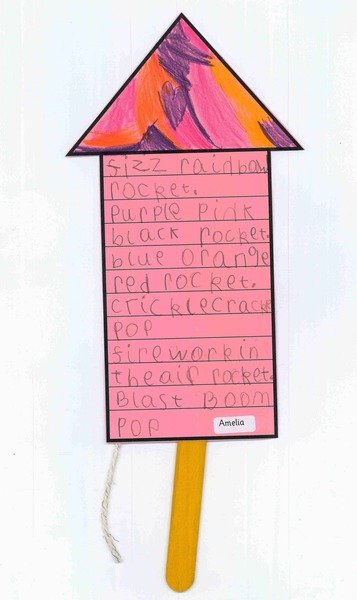 fizz rainbow
rocket.
purple pink
black rocket.
blue orange
red rocket.
cricklecrackle
pop
fireworkin
theair rocket.
Blast Boom
pop
Amelia